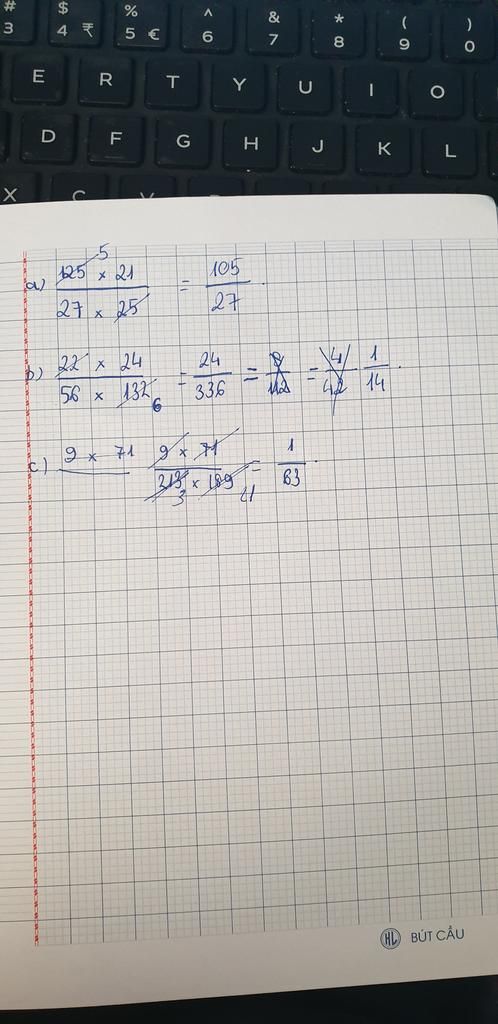 # $ % ^ & * ( )
3 4 ₹ 5 € 6 7 8 9 0
E R T Y U I O
D F G H J K L
X C V
a) 125 5 × 21 / 27 × 25 = 105 / 27 .
b) 22 × 24 / 56 × 132 6 = 24 / 336 = 8 / 112 = 4 / 42 1 / 14 .
c) 9 × 71 9 × 71 / 213 3 × 189 21 = 1 / 63 .
HL BÚT CẦU